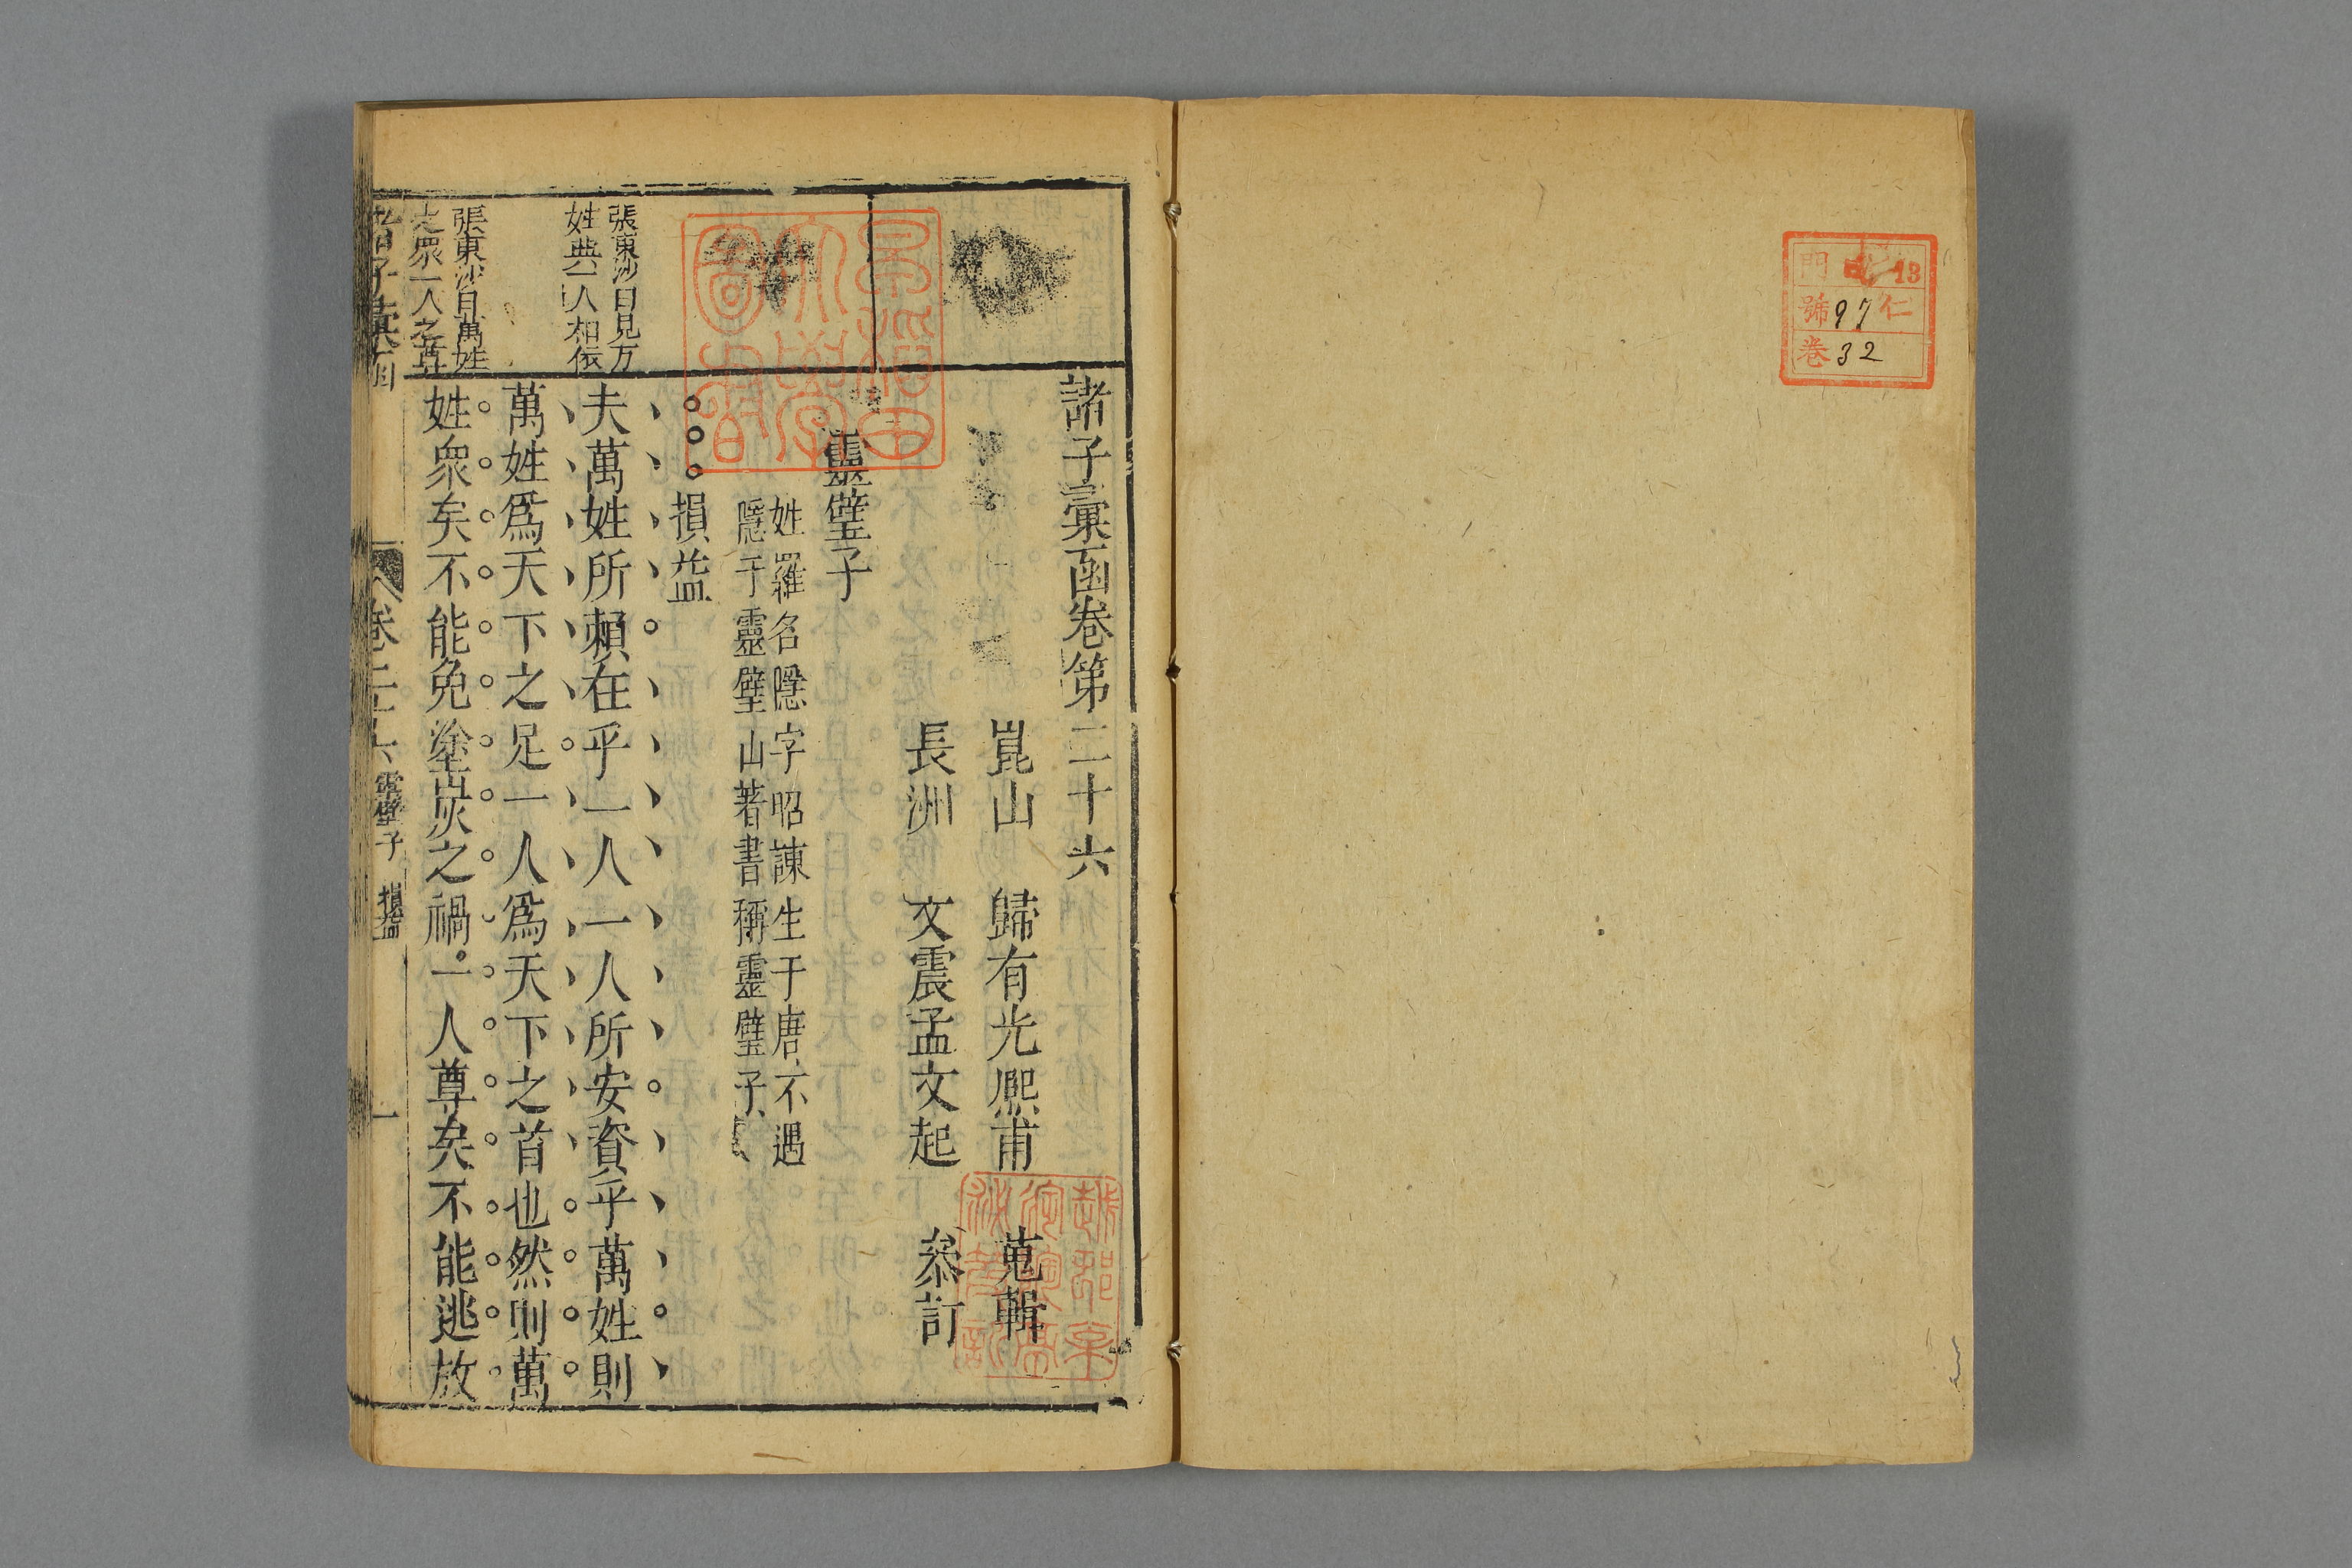 門 13
仁
號 97
卷 32
諸子彙函卷第二十六
崑山 歸有光熙甫 蒐輯
長洲 文震孟文起 叅訂
靈璧子
姓羅名隱字昭諫生于唐不遇
隱于靈璧山著書稱靈璧子
損益
張東沙曰見万
姓與一人相依
夫萬姓所賴在乎一人一人所安資乎萬姓則
萬姓爲天下之足一人爲天下之首也然則萬
張東沙曰萬姓
之衆一人之尊
姓衆矣不能免塗炭之禍一人尊矣不能逃放
諸子彙函 卷二十六 靈璧子 損益 一
早稻田大學圖書